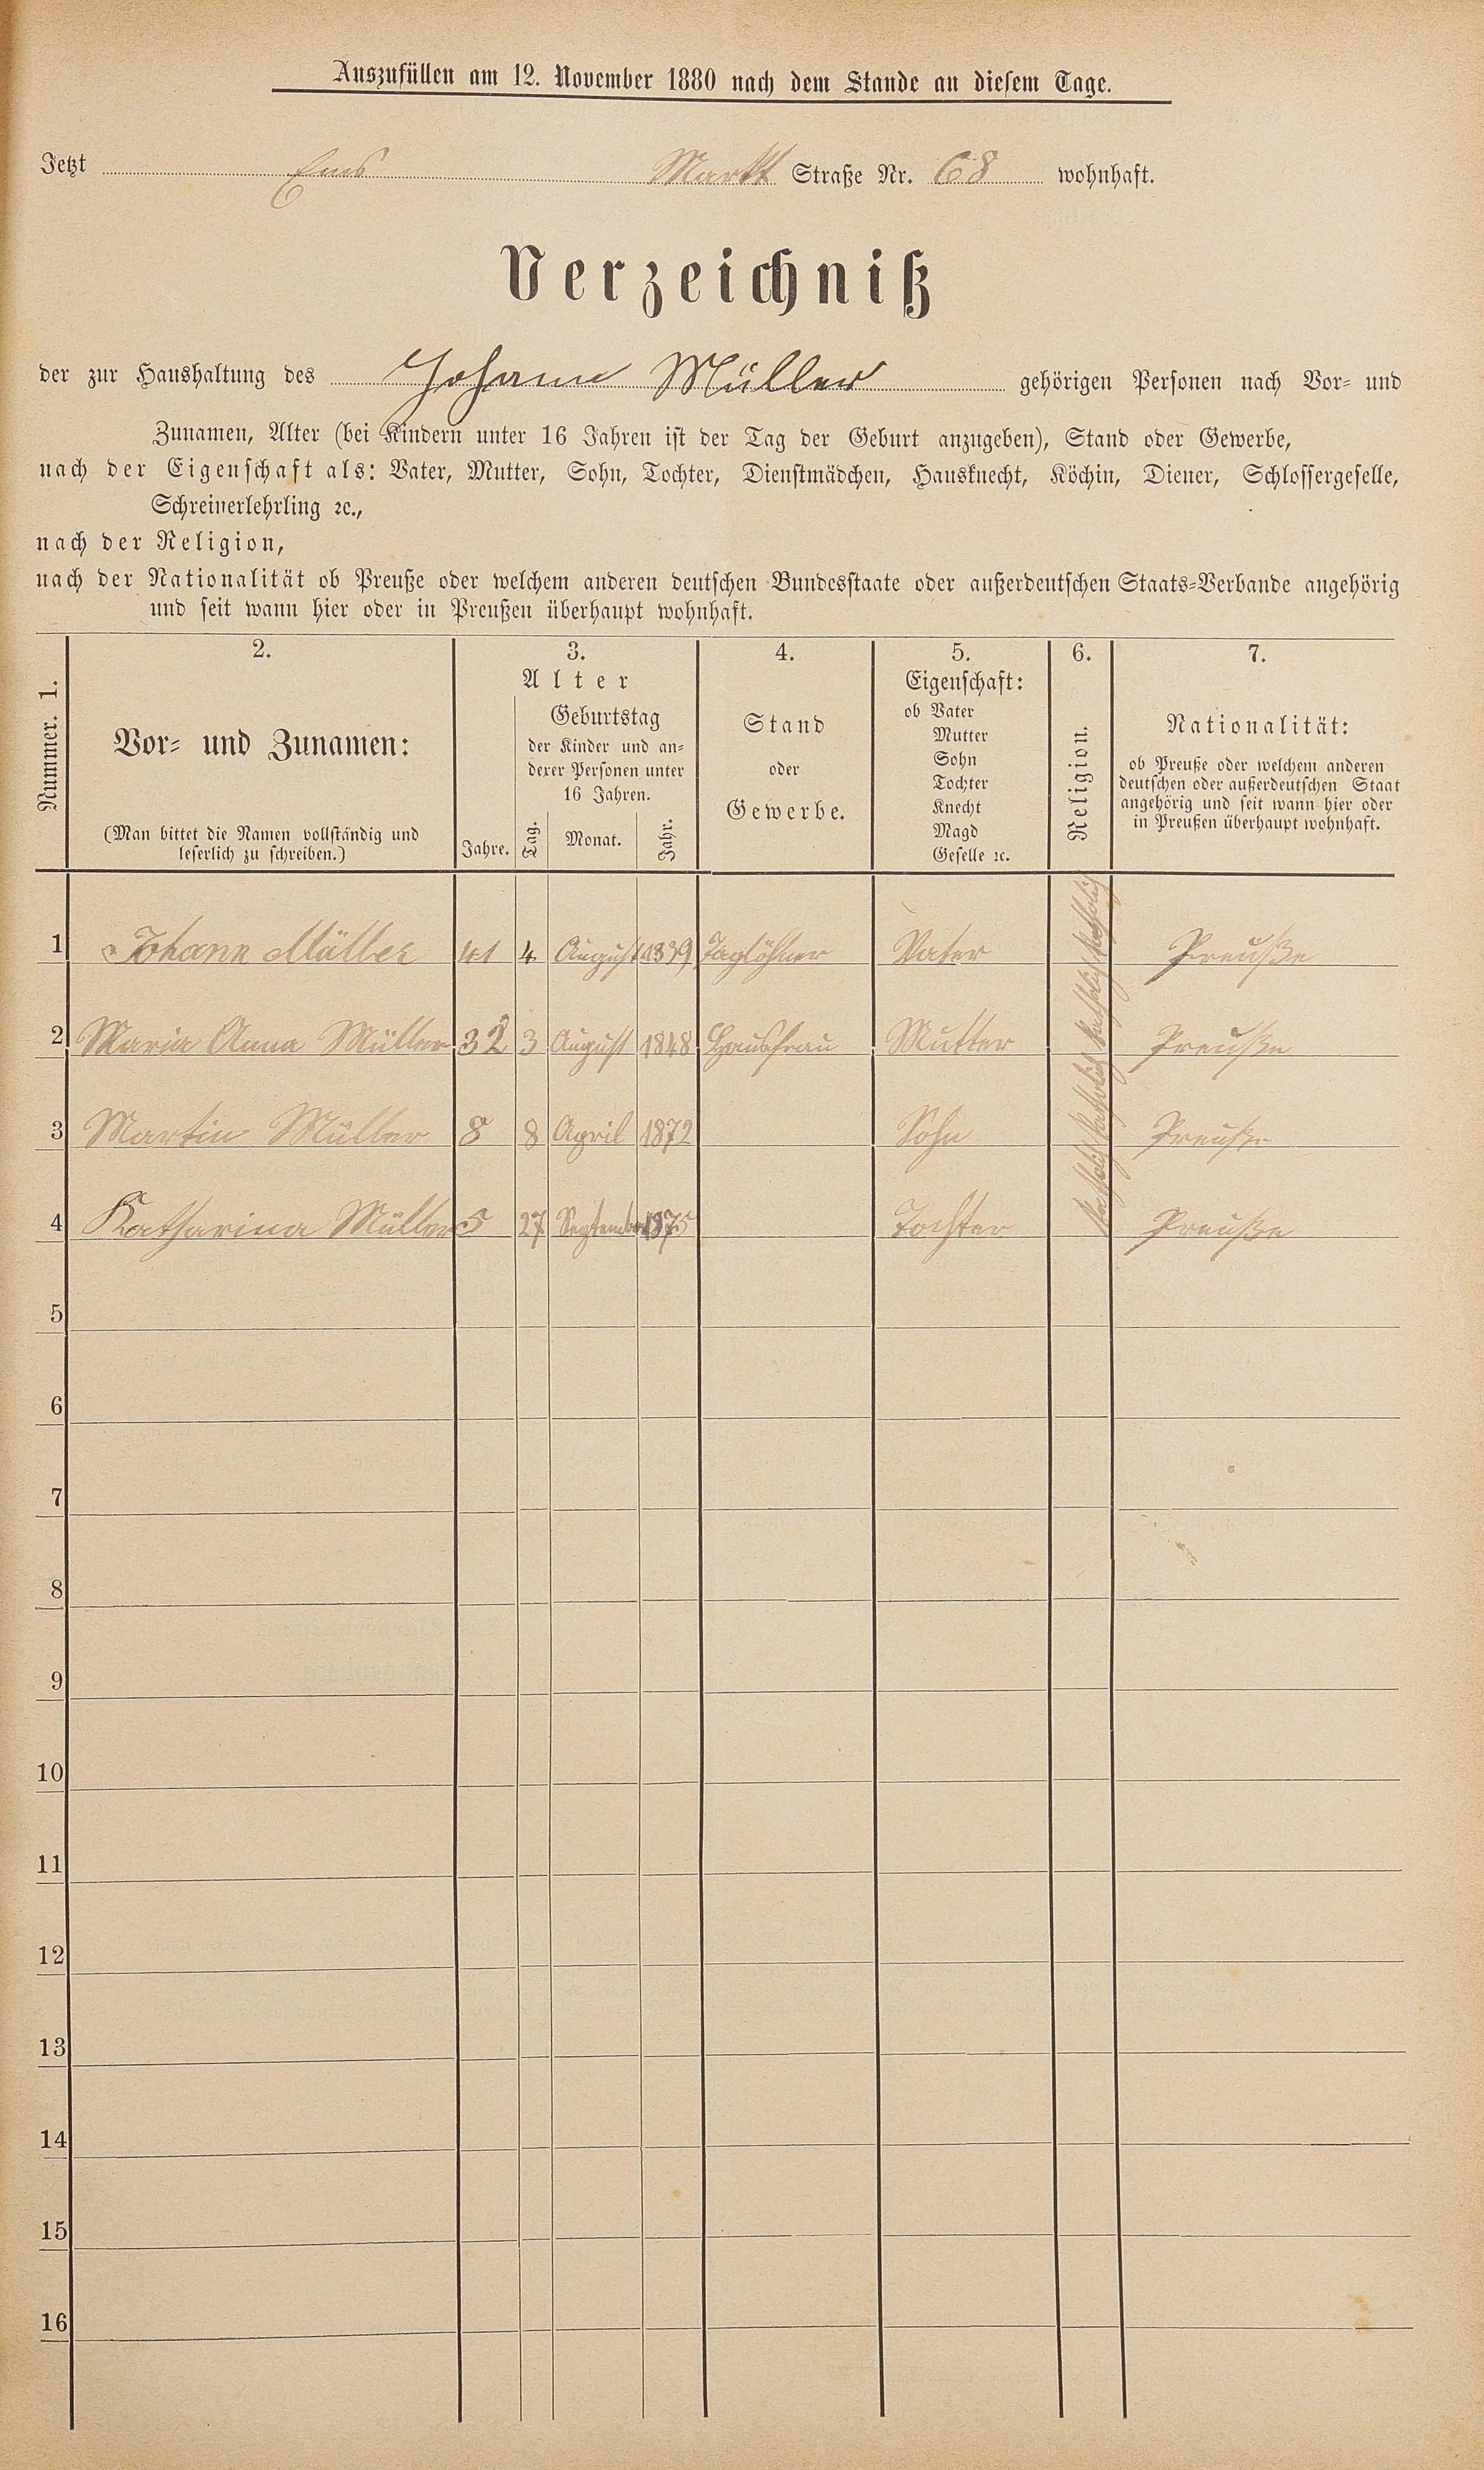 Auszufüllen am 12. November 1880 nach dem Stande an diesem Tage.
Jetzt Ems Markt Straße Nr. 68 wohnhaft.
Verzeichniß
der zur Haushaltung des Johann Müller gehörigen Personen nach Vor- und
Zunamen, Alter (bei Kindern unter 16 Jahren ist der Tag der Geburt anzugeben), Stand oder Gewerbe,
nach der Eigenschaft als: Vater, Mutter, Sohn, Tochter, Dienstmädchen, Hausknecht, Köchin, Diener, Schlossergeselle,
Schreinerlehrling ꝛc.,
nach der Religion,
nach der Nationalität ob Preuße oder welchem anderen deutschen Bundesstaate oder außerdeutschen Staats-Verbande angehörig
und seit wann hier oder in Preußen überhaupt wohnhaft.
Nummer. 1.
2.
Vor- und Zunamen:
(Man bittet die Namen vollständig und
leserlich zu schreiben.)
3.
Alter
Jahre.
Geburtstag
der Kinder und an-
derer Personen unter
16 Jahren.
Tag. Monat. Jahr.
4.
Stand
oder
Gewerbe.
5.
Eigenschaft:
ob Vater
Mutter
Sohn
Tochter
Knecht
Magd
Geselle ꝛc.
6.
Religion.
7.
Nationalität:
ob Preuße oder welchem anderen
deutschen oder außerdeutschen Staat
angehörig und seit wann hier oder
in Preußen überhaupt wohnhaft.
1 Johann Müller 41 4 August 1839 Taglöhner Vater Katholisch Preuße
2 Maria Anna Müller 32 3 August 1848 Hausfrau Mutter Katholisch Preuße
3 Martin Müller 8 8 April 1872 Sohn Katholisch Preuße
4 Katharina Müller 5 27 September 1875 Tochter Katholisch Preuße
5
6
7
8
9
10
11
12
13
14
15
16